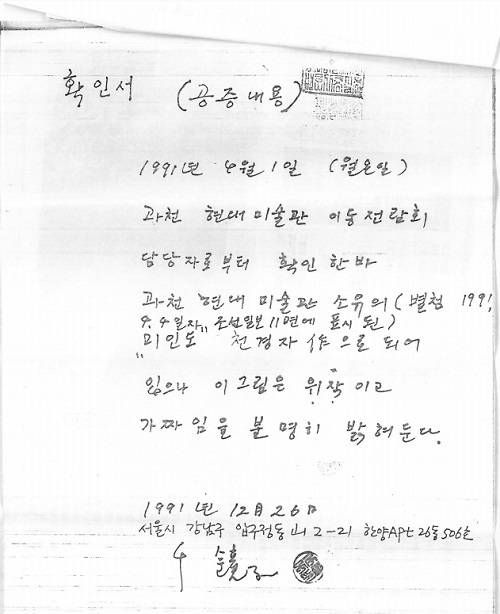 확인서 (공증내용)
1991년 4월 1일 (월요일)
과천 현대미술관 이동전람회
담당자로부터 확인한바
과천 현대미술관 소유의 (별첨 1991.
4.4일자 "조선일보 11면에 표시된)
"미인도 천경자 作으로 되어
있으나 이 그림은 위작이고
가짜임을 분명히 밝혀둔다.
1991년 12月 26日
서울시 강남구 압구정동 山 2-21 한양APt 26동 506호